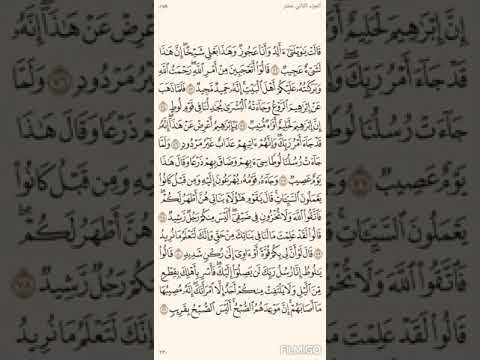 الجزء الثاني عشر
قَالَتْ يَٰوَيْلَتَىٰٓ ءَأَلِدُ وَأَنَا۠ عَجُوزٌ وَهَٰذَا بَعْلِى شَيْخًا إِنَّ هَٰذَا
لَشَىْءٌ عَجِيبٌ ٧٢ قَالُوٓا۟ أَتَعْجَبِينَ مِنْ أَمْرِ ٱللَّهِ رَحْمَتُ ٱللَّهِ
وَبَرَكَٰتُهُۥ عَلَيْكُمْ أَهْلَ ٱلْبَيْتِ إِنَّهُۥ حَمِيدٌ مَّجِيدٌ ٧٣ فَلَمَّا ذَهَبَ
عَنْ إِبْرَٰهِيمَ ٱلرَّوْعُ وَجَآءَتْهُ ٱلْبُشْرَىٰ يُجَٰدِلُنَا فِى قَوْمِ لُوطٍ ٧٤
إِنَّ إِبْرَٰهِيمَ لَحَلِيمٌ أَوَّٰهٌ مُّنِيبٌ ٧٥ يَٰٓإِبْرَٰهِيمُ أَعْرِضْ عَنْ هَٰذَآ إِنَّهُۥ
قَدْ جَآءَ أَمْرُ رَبِّكَ وَإِنَّهُمْ ءَاتِيهِمْ عَذَابٌ غَيْرُ مَرْدُودٍ ٧٦ وَلَمَّا
جَآءَتْ رُسُلُنَا لُوطًا سِىٓءَ بِهِمْ وَضَاقَ بِهِمْ ذَرْعًا وَقَالَ هَٰذَا
يَوْمٌ عَصِيبٌ ٧٧ وَجَآءَهُۥ قَوْمُهُۥ يُهْرَعُونَ إِلَيْهِ وَمِن قَبْلُ كَانُوا۟
يَعْمَلُونَ ٱلسَّيِّـَٔاتِ قَالَ يَٰقَوْمِ هَٰٓؤُلَآءِ بَنَاتِى هُنَّ أَطْهَرُ لَكُمْ
فَٱتَّقُوا۟ ٱللَّهَ وَلَا تُخْزُونِ فِى ضَيْفِىٓ أَلَيْسَ مِنكُمْ رَجُلٌ رَّشِيدٌ ٧٨
قَالُوا۟ لَقَدْ عَلِمْتَ مَا لَنَا فِى بَنَاتِكَ مِنْ حَقٍّ وَإِنَّكَ لَتَعْلَمُ مَا نُرِيدُ
٧٩ قَالَ لَوْ أَنَّ لِى بِكُمْ قُوَّةً أَوْ ءَاوِىٓ إِلَىٰ رُكْنٍ شَدِيدٍ ٨٠ قَالُوا۟
يَٰلُوطُ إِنَّا رُسُلُ رَبِّكَ لَن يَصِلُوٓا۟ إِلَيْكَ فَأَسْرِ بِأَهْلِكَ بِقِطْعٍ
مِّنَ ٱلَّيْلِ وَلَا يَلْتَفِتْ مِنكُمْ أَحَدٌ إِلَّا ٱمْرَأَتَكَ إِنَّهُۥ مُصِيبُهَا
مَآ أَصَابَهُمْ إِنَّ مَوْعِدَهُمُ ٱلصُّبْحُ أَلَيْسَ ٱلصُّبْحُ بِقَرِيبٍ ٨١
٢٣٠
FILMIGO